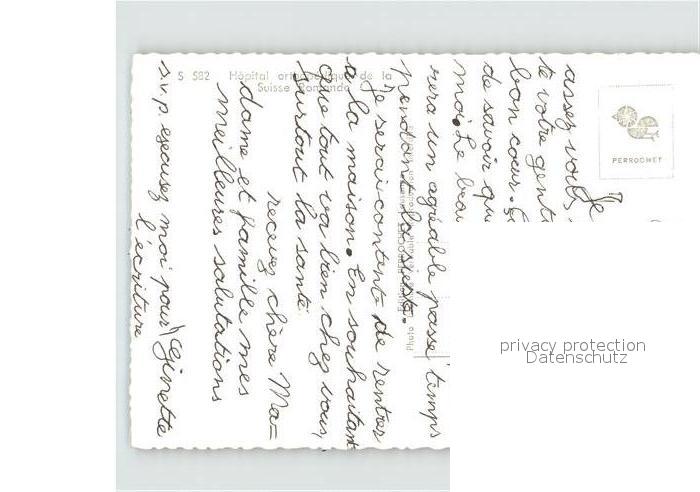 S 582 Hôpital orthopédique de la
Suisse Romande
PERROCHET
Je
assez
te votre
bon cœur.
de savoir que
moi. Le beau
rera un agréable passe temps
pendant la sieste.
Je serai content de rentrer
à la maison. En souhaitant
que tout va bien chez vous,
surtout la santé.
recevez chère Ma=
dame et famille mes
meilleures salutations
Ginette
s.v.p. excusez moi pour
l'écriture
Photo
privacy protection
Datenschutz